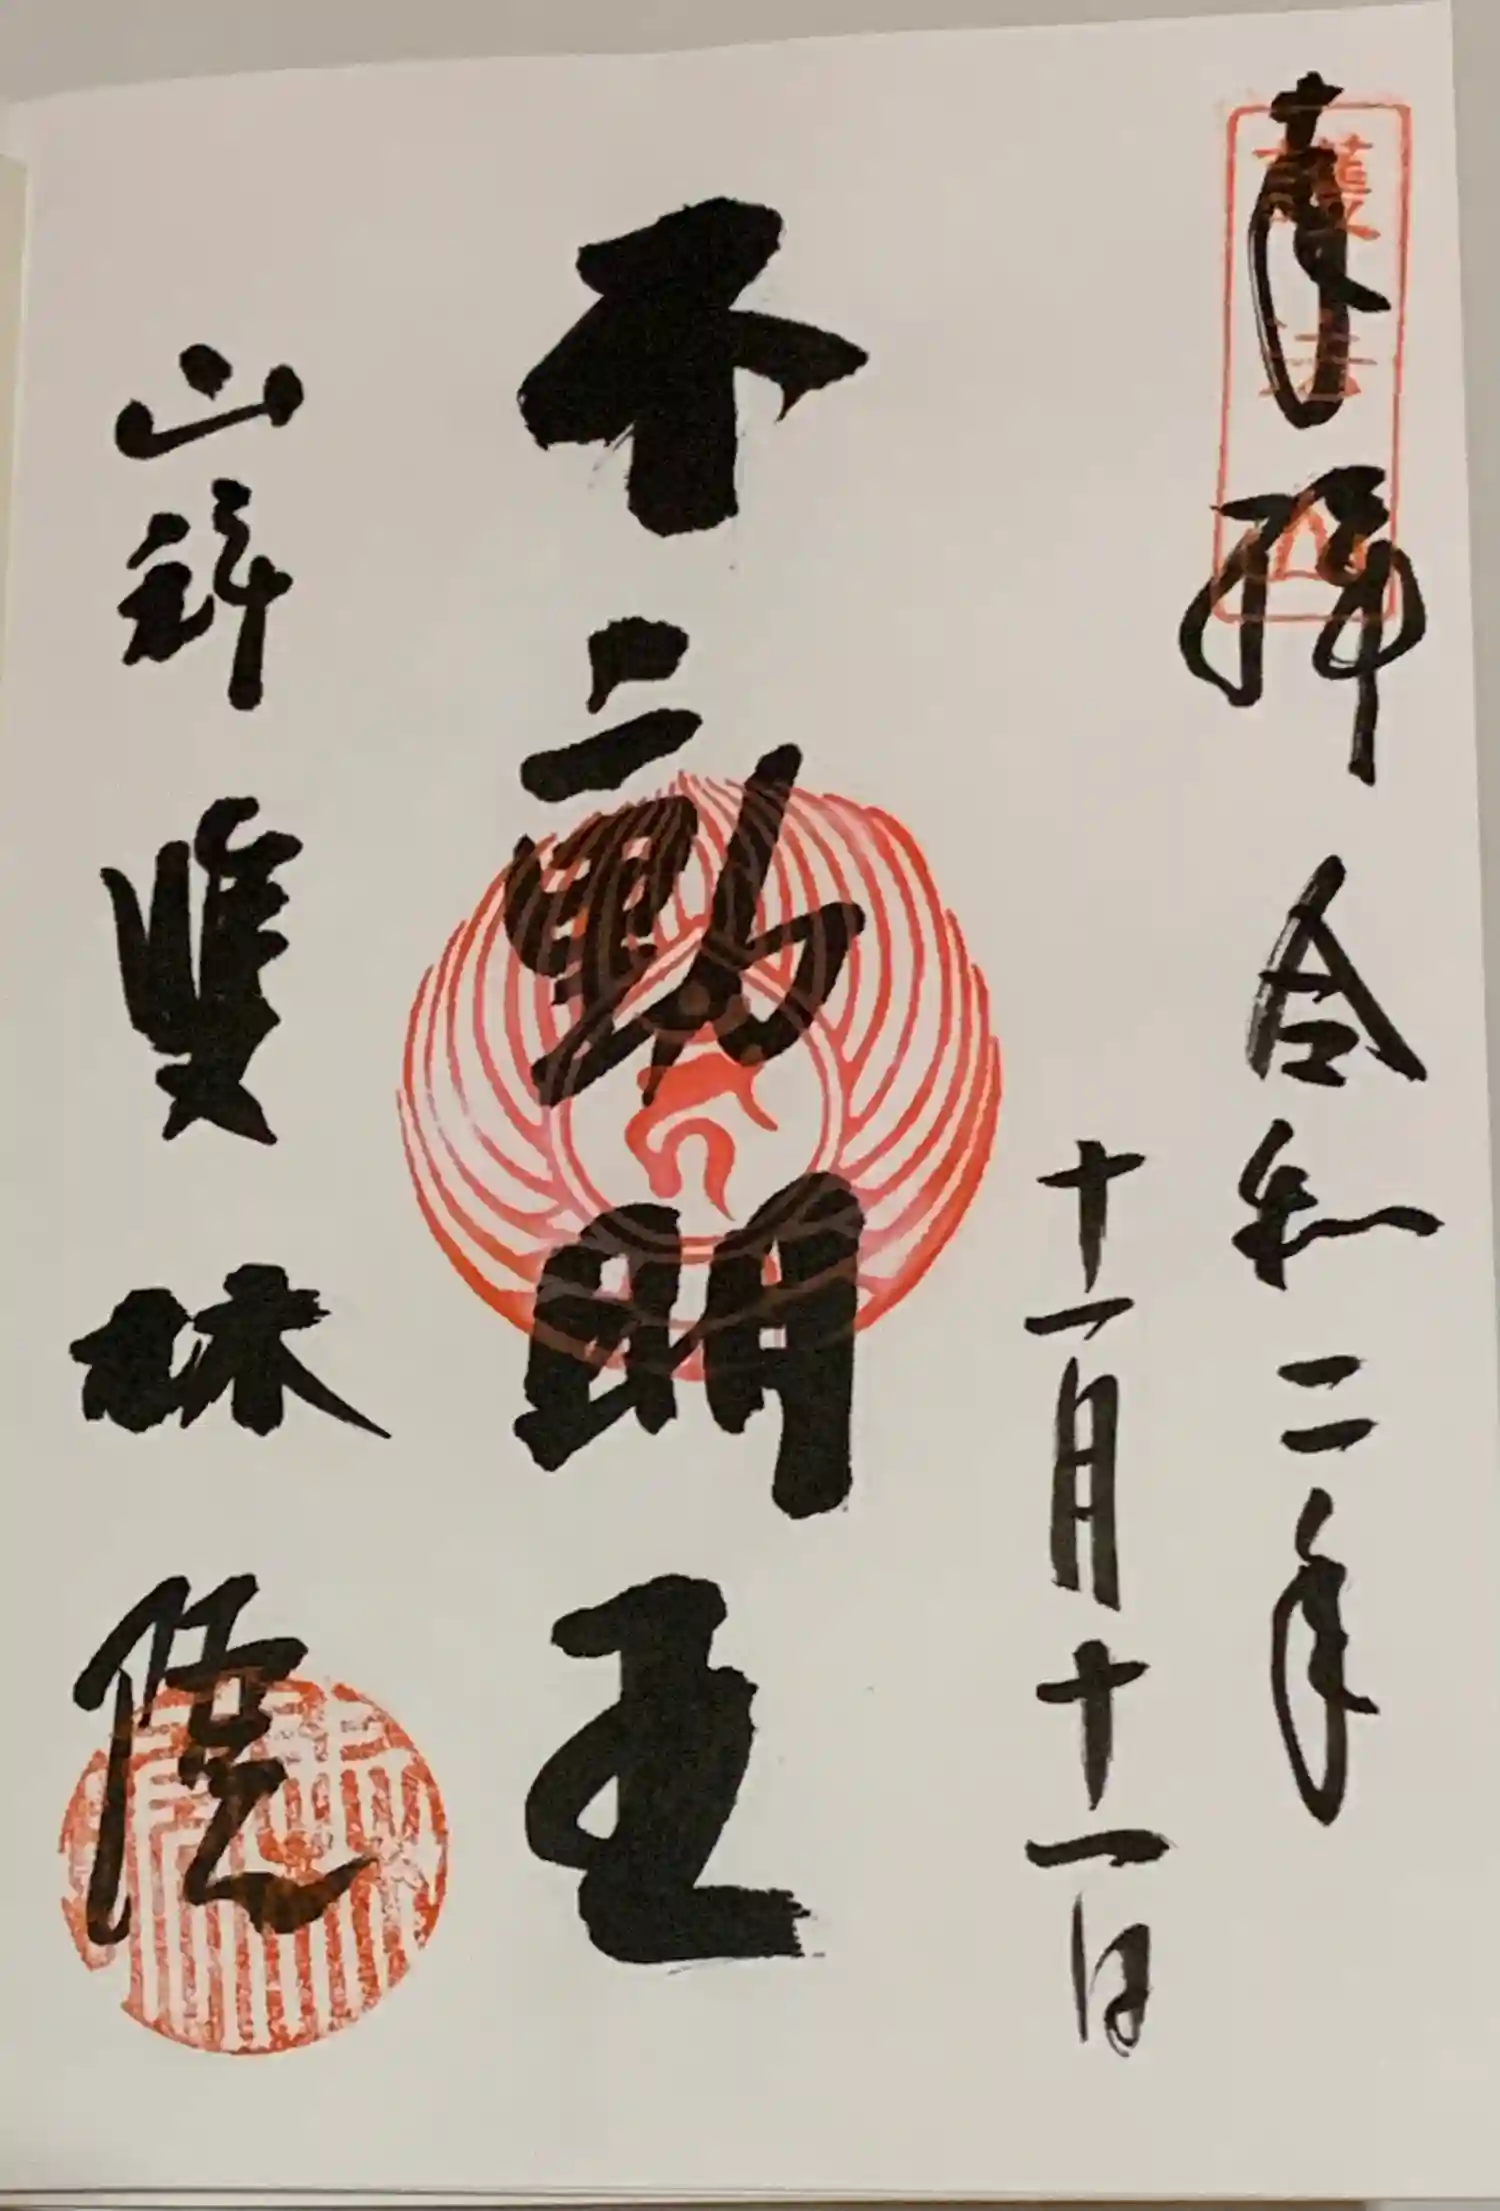 奉拝 令和二年
護法山
十一月十一日
不二動明王
山科 雙林院